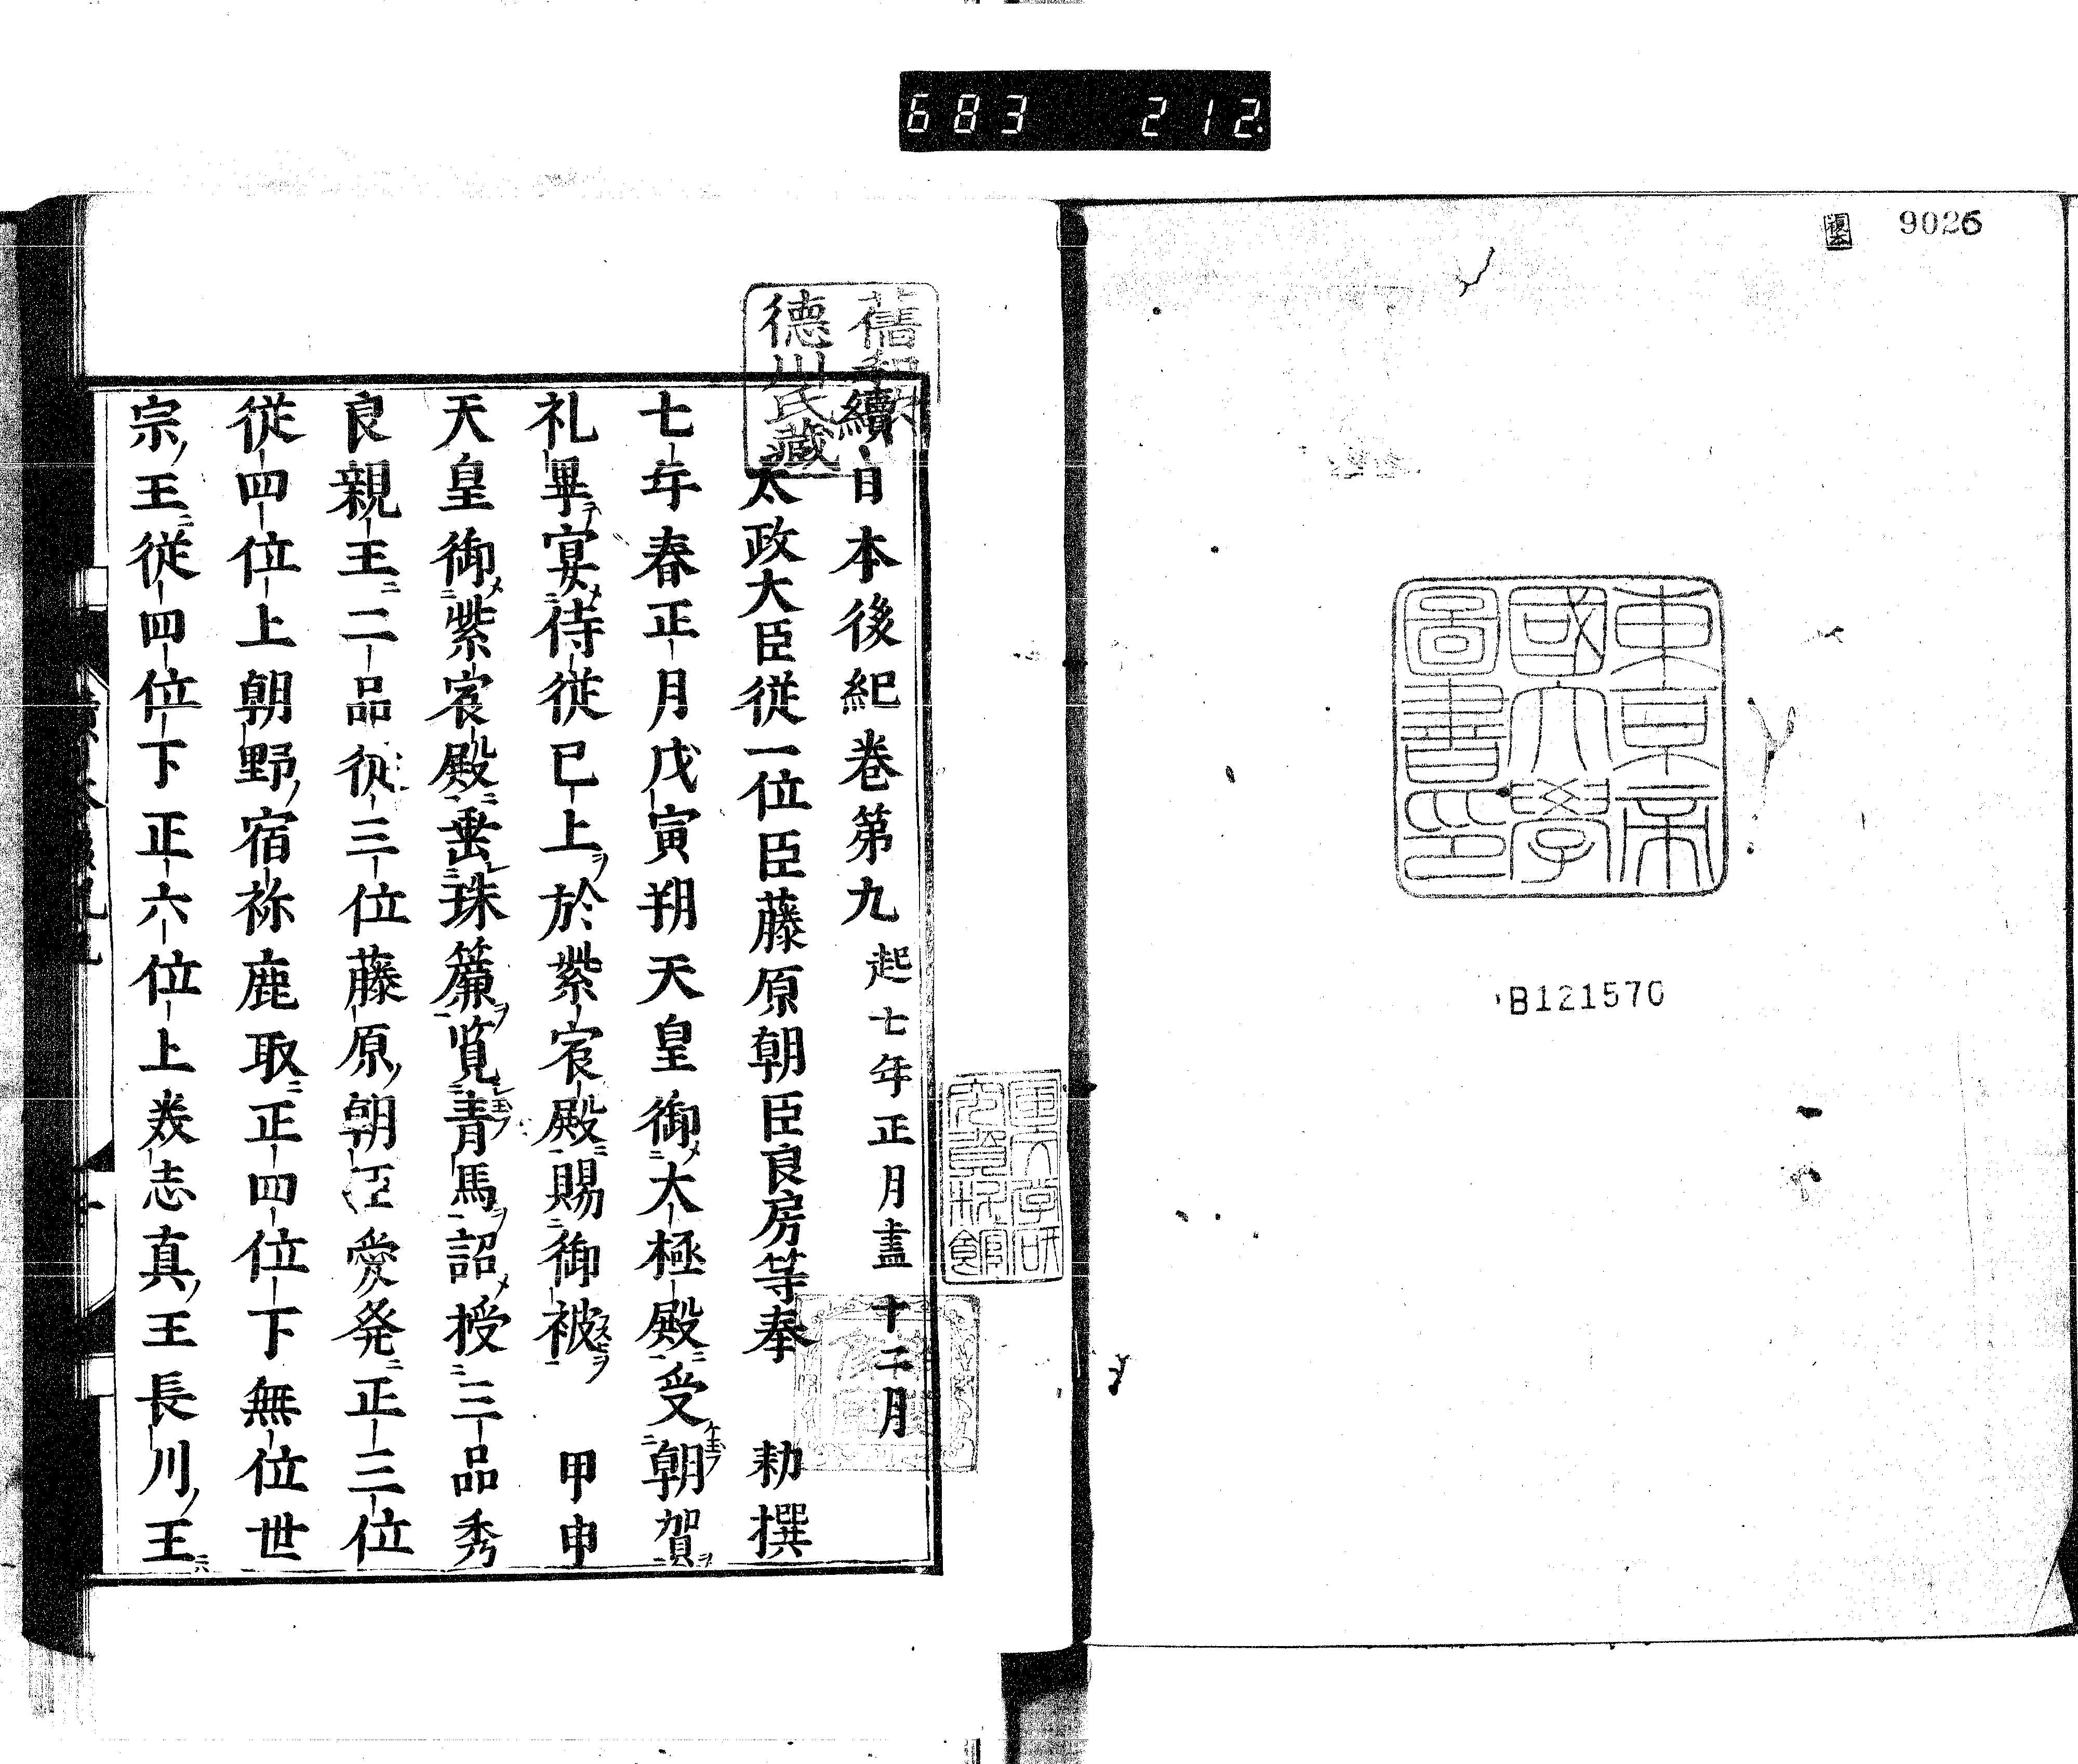 683 212.
複本 9026
東京帝
國大學
圖書印
B121570
德川氏藏
續日本後紀卷第九 起七年正月盡十二月
太政大臣従一位臣藤原朝臣良房等奉 勑撰
七年春正月戊寅朔天皇御大極殿受朝賀
礼畢宴侍従已上於紫宸殿賜御被 甲申
天皇御紫宸殿垂珠簾覧青馬詔授三品秀
良親王二品從三位藤原朝臣愛発正三位
従四位上朝野宿祢鹿取正四位下無位世
宗王従四位下正六位上美志真王長川王